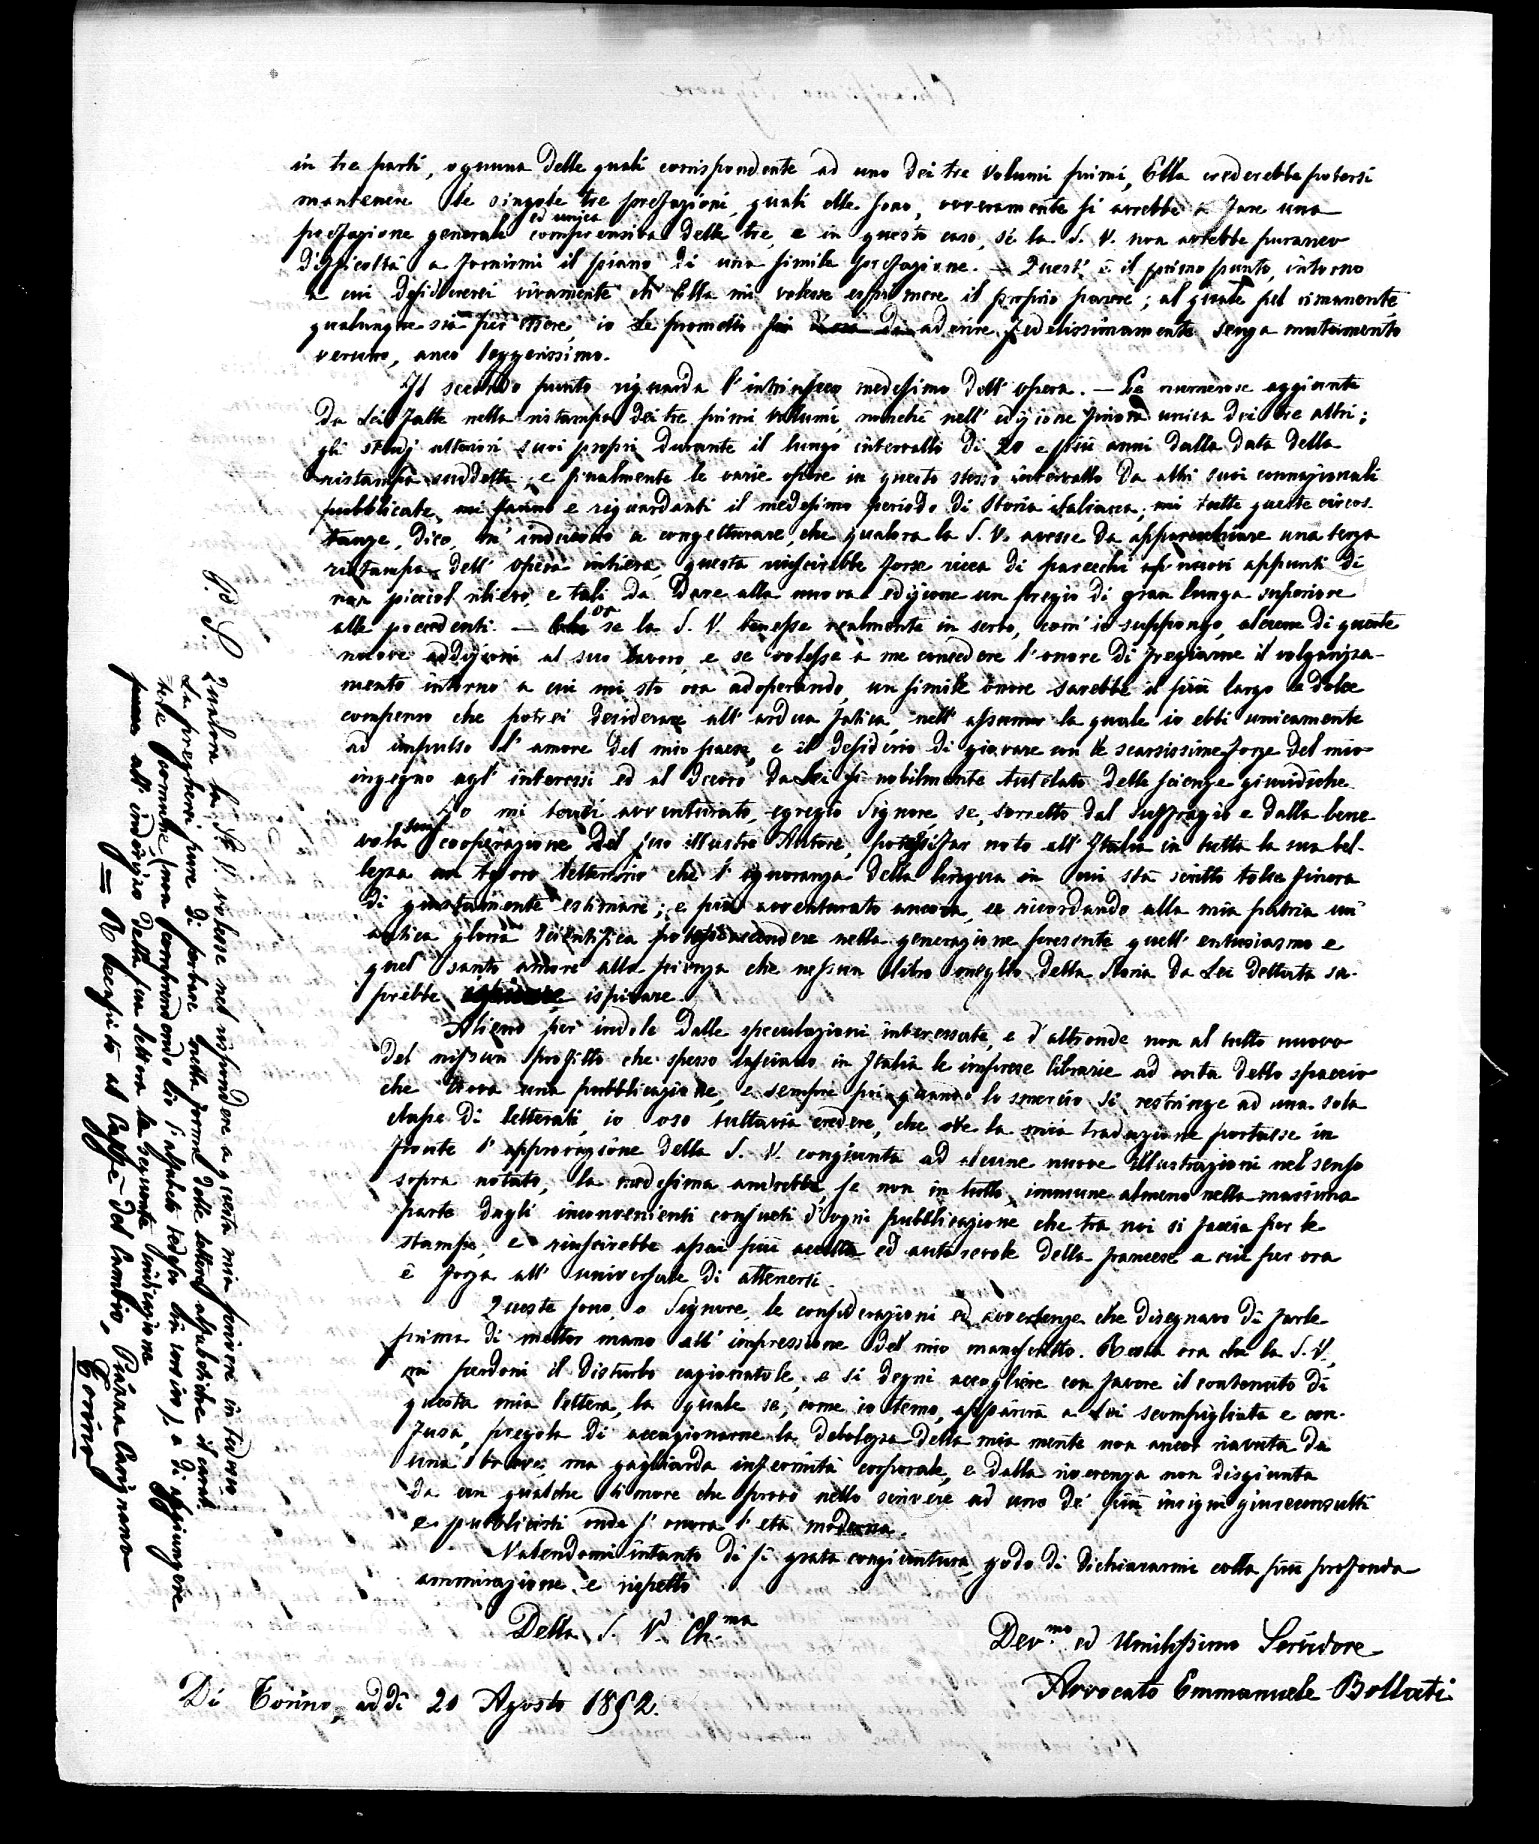 in tre parti, ognuna delle quali corrispondente ad uno dei tre volumi primi, Ella crederebbe potersi
mantenere le singole tre prefazioni, quali elle sono, ovveramente si avrebbe a fare una
prefazione generale ed unica comprensiva delle tre, e in questo caso, se la S. V. non avrebbe puranco
difficoltà a fornirmi il piano di una simile prefazione. — Quest' è il primo punto, intorno
a cui desidererei vivamente ch' Ella mi volesse esprimere il proprio parere; al quale pel rimanente,
qualunque sia per essere, io Le prometto di aderire fedelissimamente senza mutamento
veruno, anco leggerissimo.
Il secondo punto riguarda l' intrinseco medesimo dell' opera. — Le numerose aggiunte
da Lei fatte nella ristampa dei tre primi volumi, nonchè nell' edizione finora unica dei tre altri;
gli studj ulteriori suoi proprj durante il lungo intervallo di 20 e più anni dalla data della
ristampa suddetta; e finalmente le varie opere in questo stesso intervallo da altri suoi connazionali
pubblicate, e riguardanti il medesimo periodo di Storia italiana; tutte queste circos-
tanze, dico, m' inducono a congetturare, che qualora la S. V. avesse da apparecchiare una terza
ristampa dell' opera intiera, questa riuscirebbe forse ricca di parecchi nuovi appunti di
non picciol rilievo, e tali da dare alla nuova edizione un pregio di gran lunga superiore
alle precedenti. — or se la S. V. tenesse realmente in serbo, com' io suppongo, alcune di queste
nuove addizioni al suo lavoro, e se volesse a me concedere l' onore di fregiarne il volgarizza-
mento intorno a cui mi sto ora adoperando, un simile onore sarebbe il più largo e dolce
compenso che potrei desiderare all' ardua fatica, nell' assumer la quale io ebbi unicamente
ad impulso l' amore del mio paese, e il desiderio di giovare con le scarsissime forze del mio
ingegno agl' interessi ed al decoro da Lei sì nobilmente tutelato delle scienze giuridiche.
Io mi terrei avventurato, egregio Signore, se, sorretto dal suffragio e dalla bene-
vola cooperazione del suo illustre Autore, potessi far noto all' Italia in tutta la sua bel-
lezza un tesoro letterario che l' ignoranza della lingua in cui sta scritto tolse finora
di giustamente estimare; e più avventurato ancora, se ricordando alla mia patria un'
antica gloria scientifica potessi accendere nella generazione presente quell' entusiasmo e
quel santo amore alla scienza che nessun libro meglio della Storia da Lei dettata sa-
prebbe ispirare.
Alieno per indole dalle speculazioni interessate, e d' altronde non al tutto nuovo
del nissun profitto che spesso lasciano in Italia le imprese librarie ad onta dello spaccio
che trova una pubblicazione, e sempre poi quando lo smercio si restringe ad una sola
classe di letterati, io oso tuttavia credere, che ove la mia traduzione portasse in
fronte l' approvazione della S. V. congiunta ad alcune nuove illustrazioni nel senso
sopra notato, la medesima andrebbe, se non in tutto, immune almeno nella massima
parte dagli inconvenienti consueti d' ogni pubblicazione che tra noi si faccia per le
stampe, e riuscirebbe assai più accetta ed autorevole della francese a cui per ora
è forza all' universale di attenersi.
Queste sono, o Signore, le considerazioni ed avvertenze che disegnavo di farle
prima di metter mano all' impressione del mio manoscritto. Resta ora che la S. V.
mi perdoni il disturbo cagionatole, e si degni accogliere con favore il contenuto di
questa mia lettera, la quale se, come io temo, apparirà a Lei scompigliata e con-
fusa, pregola di accagionarne la debolezza della mia mente non ancor riavuta da
una breve, ma gagliarda infermità corporale, e dalla riverenza non disgiunta
da un qualche timore che provo nello scrivere ad uno de' più insigni giureconsulti
e pubblicisti onde s' onora l' età moderna.
Valendomi intanto di sì grata congiuntura, godo di dichiararmi colla più profonda
ammirazione e rispetto
Della S. V. Ch.ma
Dev.mo ed Umilissimo Servidore
Avvocato Emmanuele Bollati
Di Torino, addì 20 Agosto 1852.
P. S. Qualora la S. V. volesse nel rispondere a questa mia scrivere in tedesco
La pregherei pure di portare sulla forma delle lettere alfabetiche il caratt.
tere comune (non servendosi dell' alfabeto tedesco in corsivo), e di aggiungere
all' indirizzo della sua lettera la seguente indicazione
= Recapito al Caffè del Cambio, Piazza Carignano
Torino